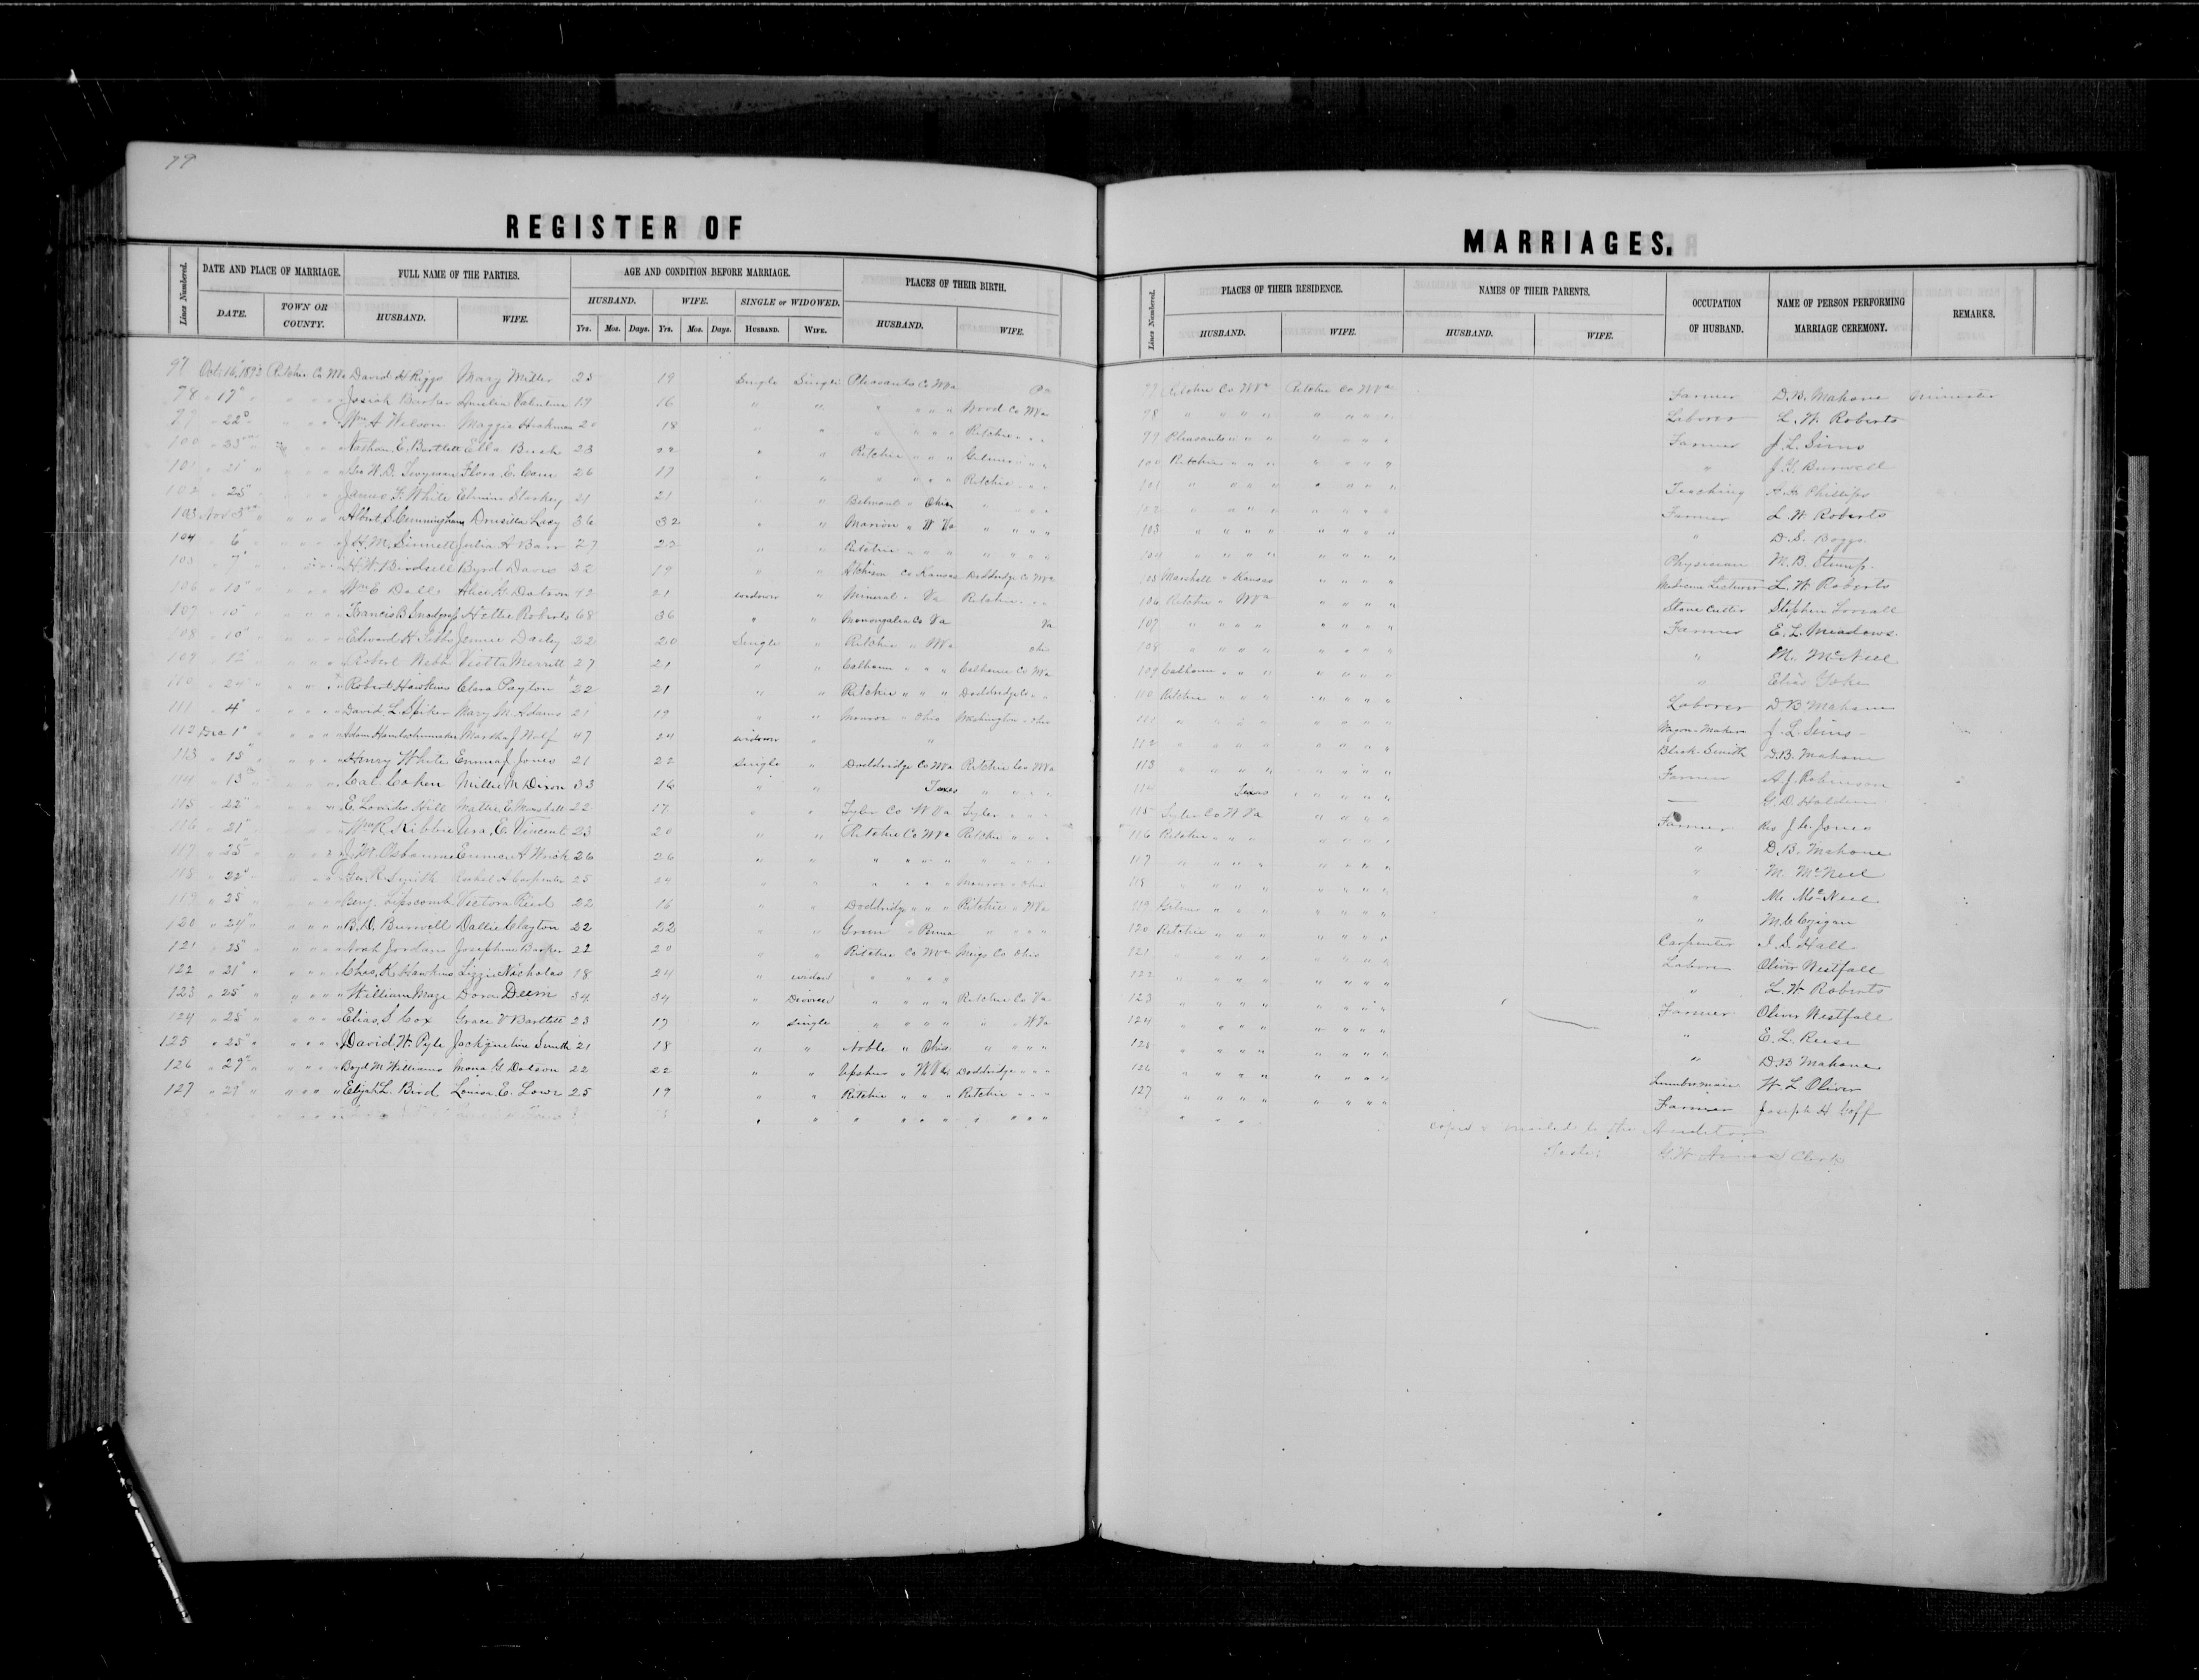 79
REGISTER OF MARRIAGES.
Lines Numbered. DATE AND PLACE OF MARRIAGE. FULL NAME OF THE PARTIES. AGE AND CONDITION BEFORE MARRIAGE. PLACES OF THEIR BIRTH. Lines Numbered. PLACES OF THEIR RESIDENCE. NAMES OF THEIR PARENTS. OCCUPATION OF HUSBAND. NAME OF PERSON PERFORMING MARRIAGE CEREMONY. REMARKS.
DATE. TOWN OR COUNTY. HUSBAND. WIFE. HUSBAND. WIFE. SINGLE or WIDOWED. HUSBAND. WIFE. HUSBAND. WIFE. HUSBAND. WIFE.
Yrs. Mos. Days. Yrs. Mos. Days. HUSBAND. WIFE.
97 Oct 16" 1893 Ritchie Co WVa David H Riggs Mary Miller 25 19 Single Single Pleasants Co WVa Pa 97 Ritchie Co WVa Ritchie Co WVa Farmer D. B. Mahone Minister
98 " 17" Josiah Barker Valentine 19 16 " " " Wood Co WVa 98 " " Laborer L. W. Roberts
99 " 22" Wm A Wilson Maggie Hickman 20 18 " " " Ritchie " " 99 Pleasants " " " Farmer J. L. Sims
100 " Nathan E. Bartlett Ella Bush 23 22 " " Ritchie " " Gilmer " " 100 Ritchie " " " "
101 " 21" Geo W. D. Flora E. 26 17 " " " Ritchie " " 101 " " Teaching Phillips
102 " 25" James F. White Elmira Starkey 21 21 " " Belmont " Ohio " 102 " " Farmer L. W. Roberts
103 Nov 3rd Albert S. Cunningham Drusilla Laxy 36 32 " " Marion " W Va " 103 " " " D. S. Boggs
104 " 6" J. H. M. Sinnett Julia A Barr 27 23 " " Ritchie " " " 104 " " Physician M. B. Stump
105 " 7" H. W. Birdsell Byrd Davis 22 19 " " Atchison Co Kansas Doddridge Co WVa 105 Marshall " Kansas " Medicine Lecturer L. W. Roberts
106 " 10" Wm E Dells Alice R. Dotson 42 21 widower " Mineral " Va Ritchie " " 106 Ritchie " WVa " Stone Cutter Stephen
107 " 15" Francis B. Snodgrass Hettie Roberts 68 36 " " Monongalia Co Va Va 107 " " Farmer E. L. Meadows
108 " 10" Edward H. Jennie Daily 22 20 Single " Ritchie " WVa Ohio 108 " " " M. McNeil
109 " 12" Robert Webb Vietta Merritt 27 21 " " Calhoun " " Calhoun Co WVa 109 Calhoun " " " " Elias Yoke
110 " 24" Robert Hawkins Clara Payton 22 21 " " Ritchie " " Doddridge Co " 110 Ritchie " " " Laborer D B Mahone
111 " 4" David L. Spiker Mary M. Adams 21 19 " " Monroe " Ohio Washington " Ohio 111 " " Wagon-Maker J. L. Sims
112 Dec 1" Adam Handschumacher Martha J Wolf 47 24 widower " " 112 " " Black-Smith D. B. Mahone
113 " 13" Henry White Emma J Jones 21 22 Single " Doddridge Co WVa Ritchie Co WVa 113 " " Farmer A. J. Robinson
114 " 13" Cal. Coken Millie M Dixon 33 16 " " Texas " 114 Texas " G. D. Holden
115 " 22" E. Lowndes Hill Mattie E. Marshall 22 17 " " Tyler Co W Va Tyler " " 115 Tyler Co W Va " Farmer Rev J. C. Jones
116 " 21" Wm R. Kibbie Ura, E. Vincent 23 20 " " Ritchie Co WVa Ritchie " " 116 Ritchie " " " " D. B. Mahone
117 " 25" J. W. Osbourne Emma A 26 26 " " " " 117 " " " M. McNeil
118 " 22" Geo. R. Smith Rachel A Carpenter 25 24 " " " Monroe " Ohio 118 " " " M. McNeil
119 " 25 Benj. Lipscomb Victora Reed 22 16 " " Doddridge " " Ritchie " WVa 119 Gilmer " " " "
120 " 24" B. D. Burwell Dallie Clayton 22 22 " " Green " Penna " 120 Ritchie " " " Carpenter I. S. Hall
121 " 25" Noah Jordan Josephine Barker 22 20 " " Ritchie Co WVa Meigs Co Ohio 121 " " Labor Oliver Westfall
122 " 21" Chas. K. Hawkins Lizzie Nicholas 18 24 " widow " " 122 " " " L. W. Roberts
123 " 25" William Maze Dora Deem 34 34 " Divorced " Ritchie Co Va 123 " " Farmer Oliver Westfall
124 " 25" Elias, S Cox Grace V Bartlett 23 17 " single " " " W Va 124 " " " E. L. Reese
125 " 25" David, W. Pyle Jackqueline Smith 21 18 " " Noble " Ohio " 125 " " " D. B Mahone
126 " 27" Boyd M Williams Mona G. Dotson 22 22 " " Upshur " W Va Doddridge " " 126 " " Lumberman W L Oliver
127 " 29" Elijah L. Bird Louisa. E. Lowe 25 19 " " Ritchie " " Ritchie " " 127 " " Farmer Joseph H Goff
Copied & mailed to the Auditor
Teste: G. W. Amos Clerk